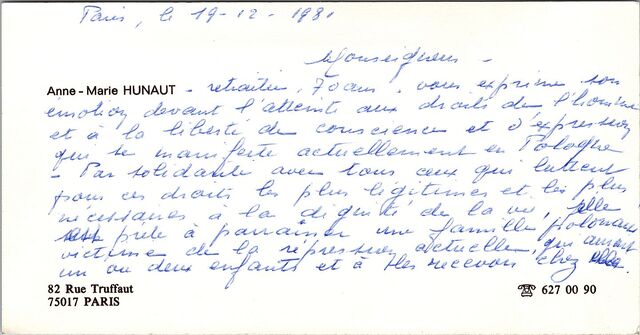 Paris, le 19-12-1981
Monseigneur -
Anne-Marie HUNAUT - retraitée, 70 ans, vous exprime son
émotion devant l'atteinte aux droits de l'homme
et à la liberté de conscience et d'expression
qui se manifeste actuellement en Pologne
- Par solidarité avec tous ceux qui luttent
pour ces droits les plus légitimes et les plus
nécessaires à la dignité de la vie, elle
est prête à parrainer une famille polonaise
victime de la répression actuelle, qui auraient
un ou deux enfants et à les recevoir chez elle.
82 Rue Truffaut
75017 PARIS
☎ 627 00 90